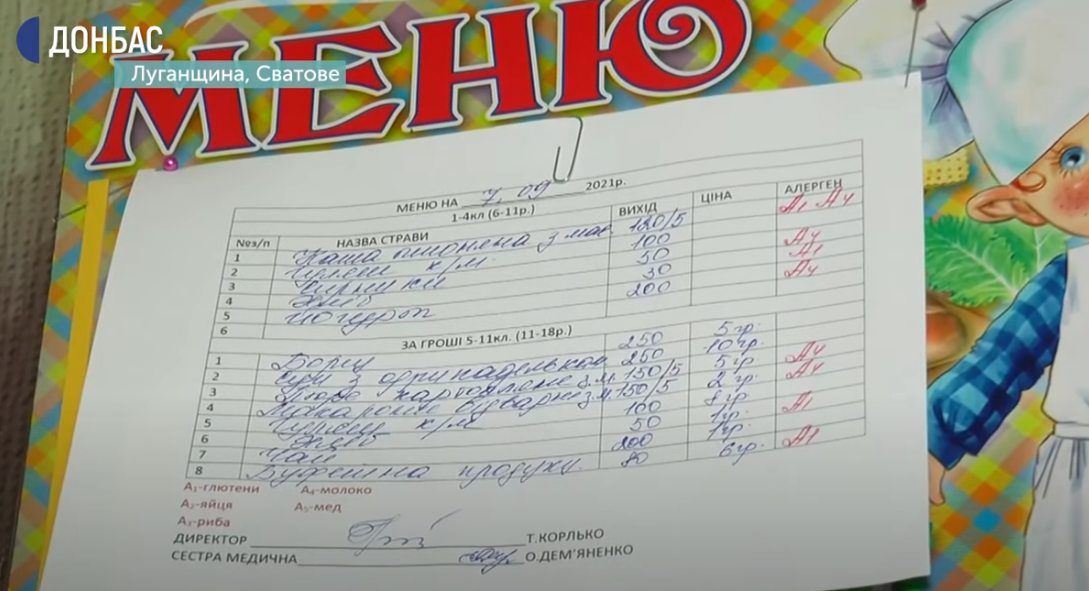 ДОНБАС
Луганщина, Сватове
МЕНЮ
МЕНЮ НА 7.09 2021р.
1-4кл (6-11р.)
№з/п НАЗВА СТРАВИ ВИХІД ЦІНА АЛЕРГЕН
1 Каша пшоняна з мас. 120/5 А1 А4
2 к/м 100
3 50 А4
4 Хліб 30 А1
5 Йогурт 200 А4
6
ЗА ГРОШІ 5-11кл. (11-18р.)
1 Борщ 250 5 гр.
2 Суп з фрикадельками 250 10 гр.
3 Пюре картоплене з м. 150/5 5 гр. А4
4 Макарони відварне з м. 150/5 2 гр. А4
5 к/м 100 8 гр.
6 Хліб 50 1 гр. А1
7 Чай 200 1 гр.
8 продукц. 80 6 гр. А1
А₁-глютени А₄-молоко
А₂-яйця А₅-мед
А₃-риба
ДИРЕКТОР Т.КОРЛЬКО
СЕСТРА МЕДИЧНА О.ДЕМ'ЯНЕНКО